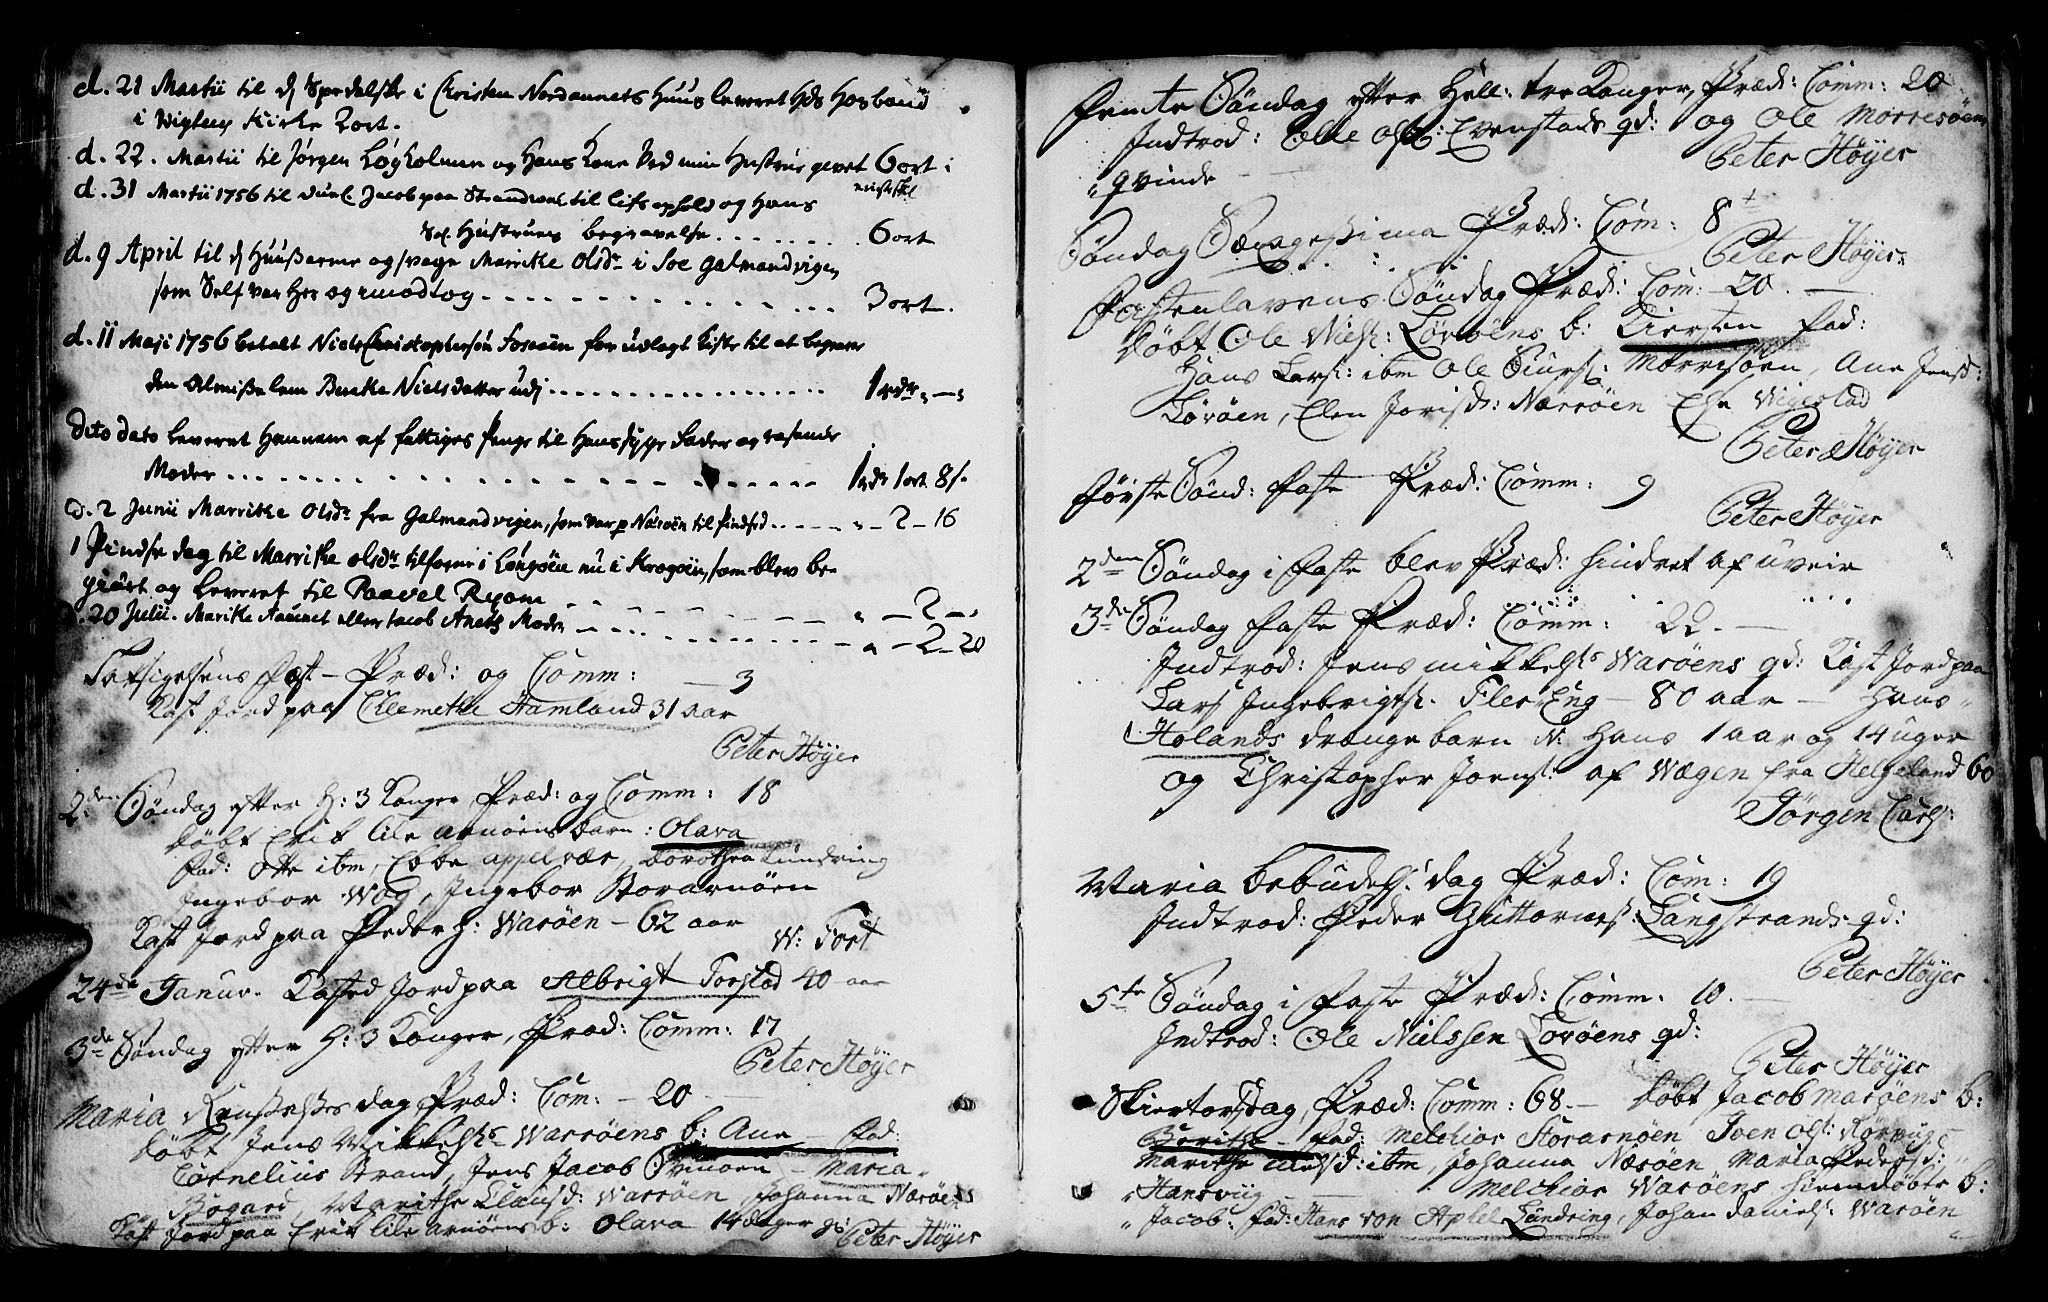 d. 21 Martii til d Spedalske i Christen Nordaunets Huus leveret Hds Hosbond
i Vigten Kirke 2ort.
d. 22. Martii til Jørgen Løgholmen og Hans Kone ved min Hustrue gevet 6ort
d. 31 Martii 1756 til Jacob paa Strandvold til lifs ophold og Hans
Sl. Hustrues begravelse . . . . . . . 6ort
d. 9 April til d Huusarme og svage Marrithe Olsdr i Soe Galmandvigen
som Self var her og modtog . . . . . 3ort.
d. 11 Maji 1756 betalt Niels Christophersøn Foreøen for udlagt Kiste til at begrave
den Almisse lem Beritke Niels datter udj . . . . 1 rdr „ — „
Dito dato leveret Hannem af fattiges Penge til Hans syge Fader og rasende
Moder . . . . . . 1 rdr 1 ort 8 s.
d. 2 Junii Marrithe Olsdr fra Galmandvigen, som var p Nærøen til Pindsed . . — „ — 2 — 16
1 Pindse dag til Marrithe olsdr tilforne i Longøen nu i Kragøen, som blev be-
giært og leveret til Paavel Ryom — — „ — 2 — „
d. 20 Julii. Marithe Aaunet eller Jacob Anets Moder — — „ — 2 — 20
Taksigelsens fest — Præd: og Comm: — 3
Kast Jord paa Clemethe Hamland 31 aar
Peter Høyer
2den Søndag efter H: 3 Konger, Præd: og Comm: 18
døbt Erik lile arnøens barn: Olava
fad: Otte ibm, Ebbe appelvær, Dorothea Lundring
Ingebor Wog, Ingebor Storarnøen
Kast Jord paa Peder H: Warøen — 62 aar
W: Tort
24de Januv. Kasted Jord paa Albrigt Torstad 40 aar
3de Søndag efter H: 3 Konger, Præd: Comm: 17
Peter Høyer
Maria Renselses dag, Præd: Com: — 20 —
døbt Jens Mikkelss Warrøens b: Ane — fad:
Cornelius Strand, Jens Jacob — Maria
Bøgard, Marithe Clausd: Warrøen, Johanna Nærøens
Kast Jord paa Erik lile arnøens b: Olava 14 dager gl:
Peter Høyer
femte Søndag efter Hell: tre Konger, Præd: Comm: 20
Indtrod: Olle Ols: Evenstads gd: og Ole Morresøens
„ qvinde — —
Peter Høyer
Søndag Sexagesima Præd: Com: 8
Peter Høyer
Fastenlavens Søndag Præd: Com: — 20. —
døbt Ole Niels: Lørøens b: Kiersten fad:
Hans Lars: ibm Ole Siurs: Morrisøen, Ane Jensd:
Lørøen, Elen Jorisd: Nærøen Else Wigestad
Peter Høyer
første Sønd: faste Præd: Comm: 9
Peter Høyer
2den Søndag i faste blev Præd: hindret af uveir
3de Søndag faste Præd: Comm: 22. —
Indtrod: Jens Mikkelss Warøens qd: Kast Jord paa
Lars Ingebrigts: Fler Eng — 80 aar — Hans
Holands drænge barn N: Hans 1 aar og 14 uger
og Christopher Joens: af Wægen fra Helgeland 60
Jørgen Curs:
Maria bebudels: dag Præd: Com: 19
Indtrod: Peder Guttorms: Langstrands qd:
Peter Høyer
5te Søndag i faste Præd: Comm: 10. —
Indtrod: Ole Nielssen Lorøens qd:
Peter Høyer
Skiertorsdag, Præd: Comm: 68. — døbt Jacob Marøens b:
Berithe — fad: Melchior Storarnøen Joen Ols: Rørvug
Marithe Nielsd: ibm, Johanna Nærøen Maria Pedersd:
„ Hansvug — Melchior Warøens hiemdøbte b:
„ Jacob: fad: Hans von Aphel Lundring, Johan Daniels: Warøen